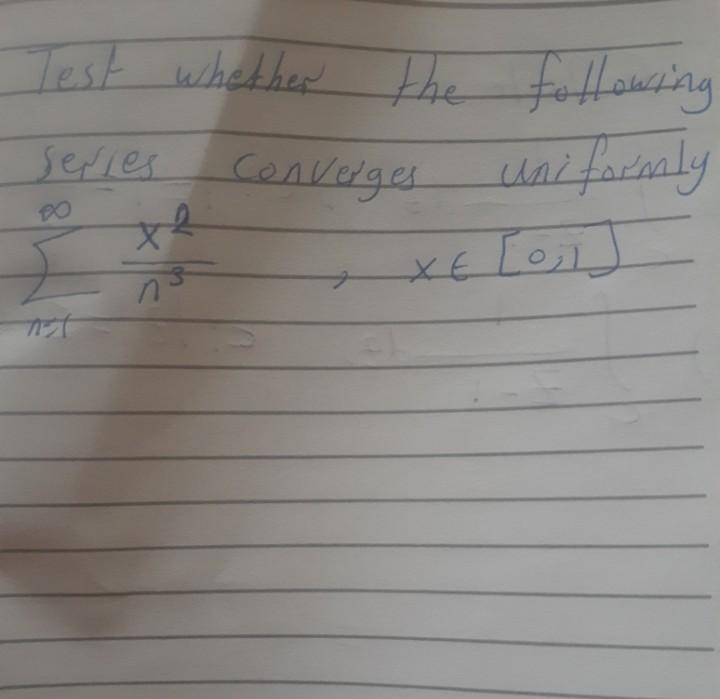 Test whether the following
series converges uniformly
∞
∑ x²/n³ , x ∈ [0,1]
n=1